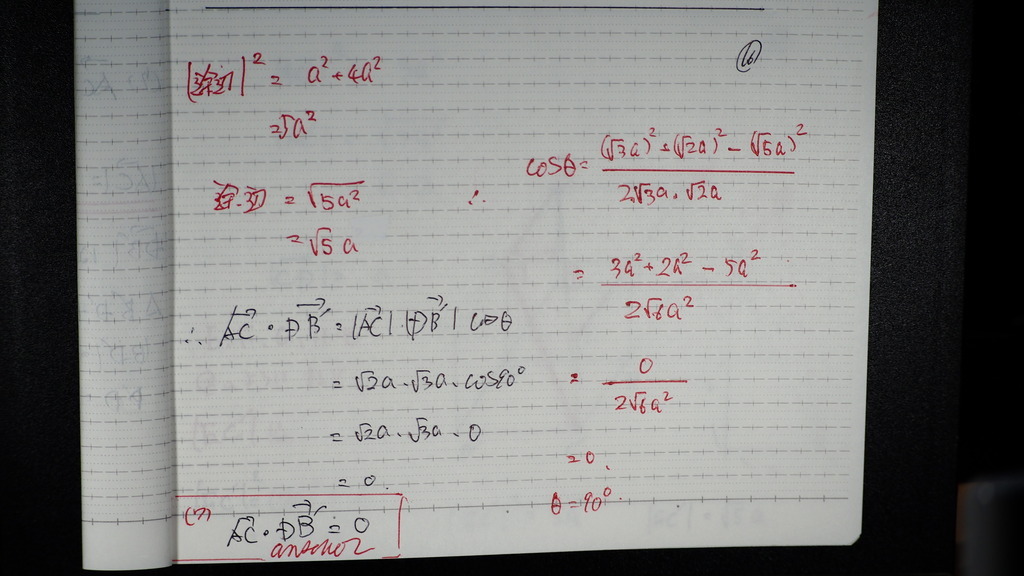 (6)
| |² = a² + 4a²
= 5a²
= √5a²
= √5 a
∴ cosθ = (√3a)² + (√2a)² - (√5a)² / 2√3a · √2a
= 3a² + 2a² - 5a² / 2√6a²
= 0 / 2√6a²
= 0,
θ = 90°.
∴ AC · DB' = |AC| · |DB'| cosθ
= √2a · √3a · cos90°
= √2a · √3a · 0
= 0.
(7) AC · DB' = 0